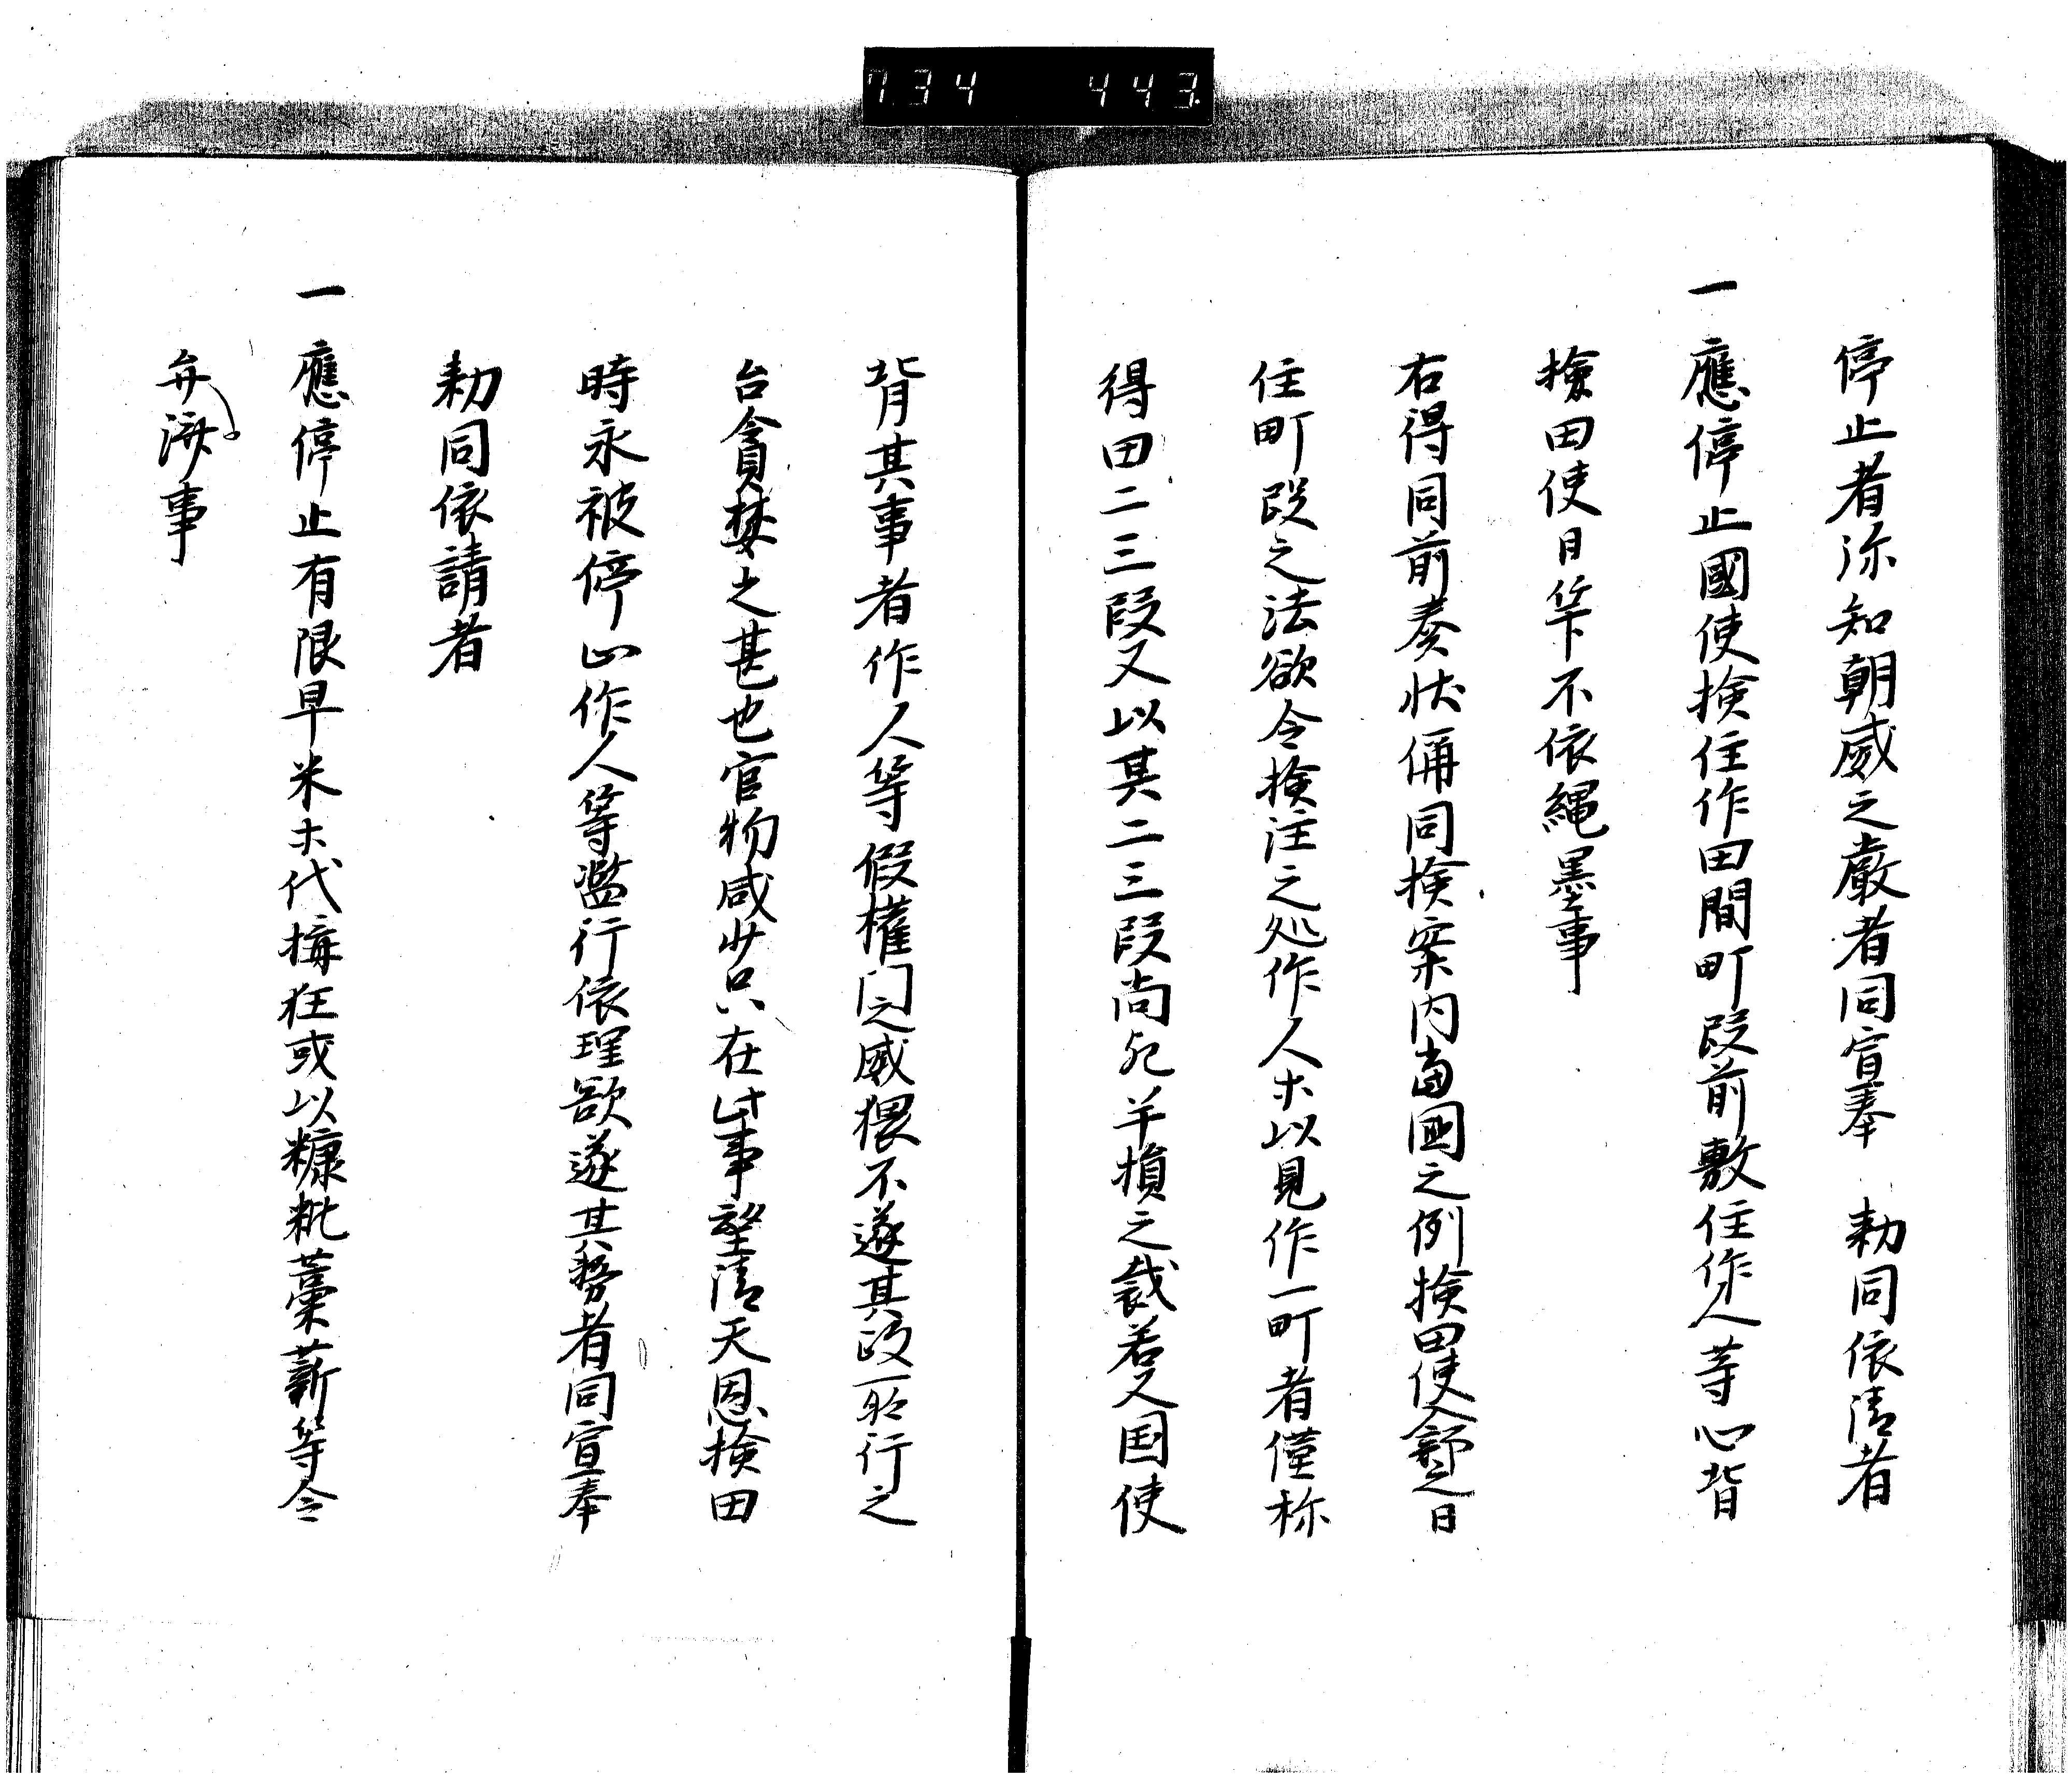 734 443
停止者弥知朝威之厳者同宣奉 勅同依請者
一應停止國使検住作田間町段前敷住作人等心背
撿田使日笇不依繩墨事
右得同前奏状偁同検案内當國之例検田使入部之日
住町段之法欲令検注之処作人ホ以見作一町者僅称
得田二三段又以其二三段尚充半損之裁若又国使
背其事者作人等假權门之威猥不遂其政所行之
旨貪婪之甚也官物咸少只在此事望請天恩検田
時永被停止作人等濫行依理欲遂其勢者同宣奉
勅同依請者
一應停止有限早米ホ代掠狂或以糠粃藁薪等令
弁濟事